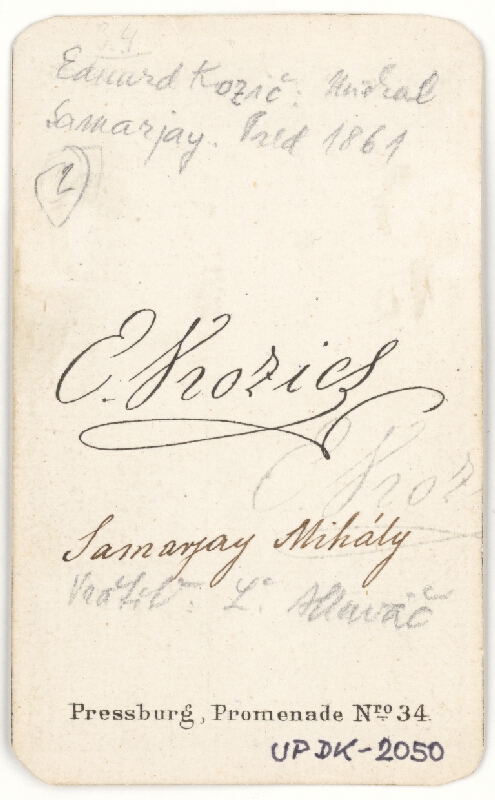 3.4
Eduard Kozič: Michal
Samarjay. Pred 1861
1
E. Kozics
E. Koz
Samarjay Mihály
Vrátil: Ľ. Hlaváč
Pressburg, Promenade Nro 34.
UP DK-2050